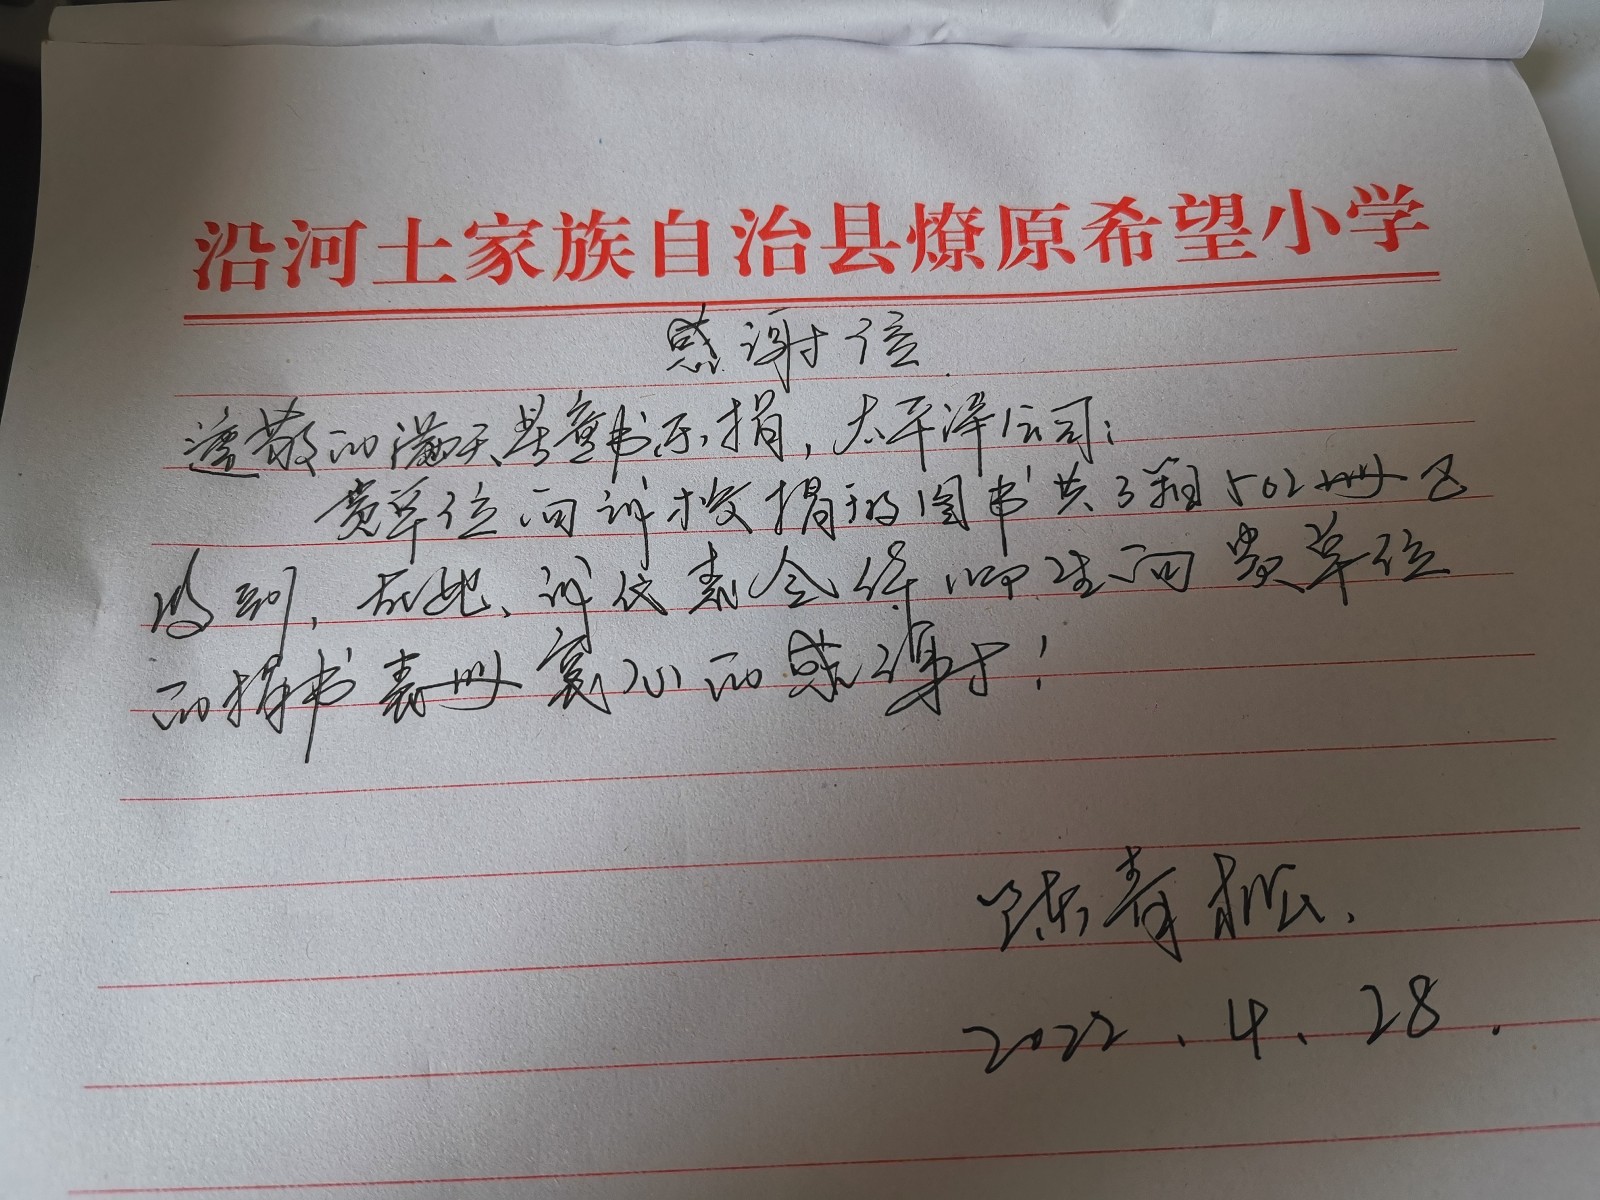 沿河土家族自治县燎原希望小学
感谢信
尊敬的满天星童书乐捐,太平洋公司:
贵单位向我校捐赠图书共3箱502册已
收到,在此,我代表全体师生向贵单位
的捐书表此衷心的感谢!
陈青松.
2022、4、28.